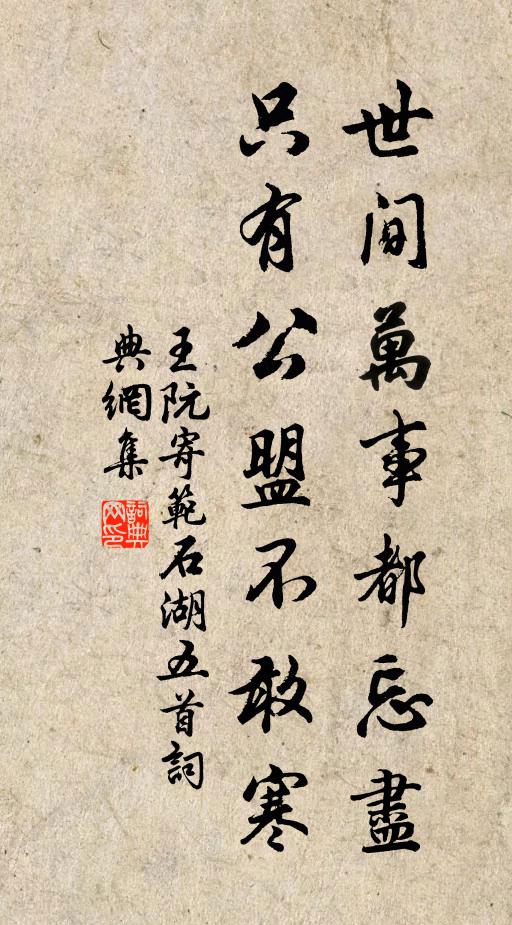 世間萬事都忘盡
只有公盟不敢寒
王阮寄範石湖五首詞
典網集
詞典
网印